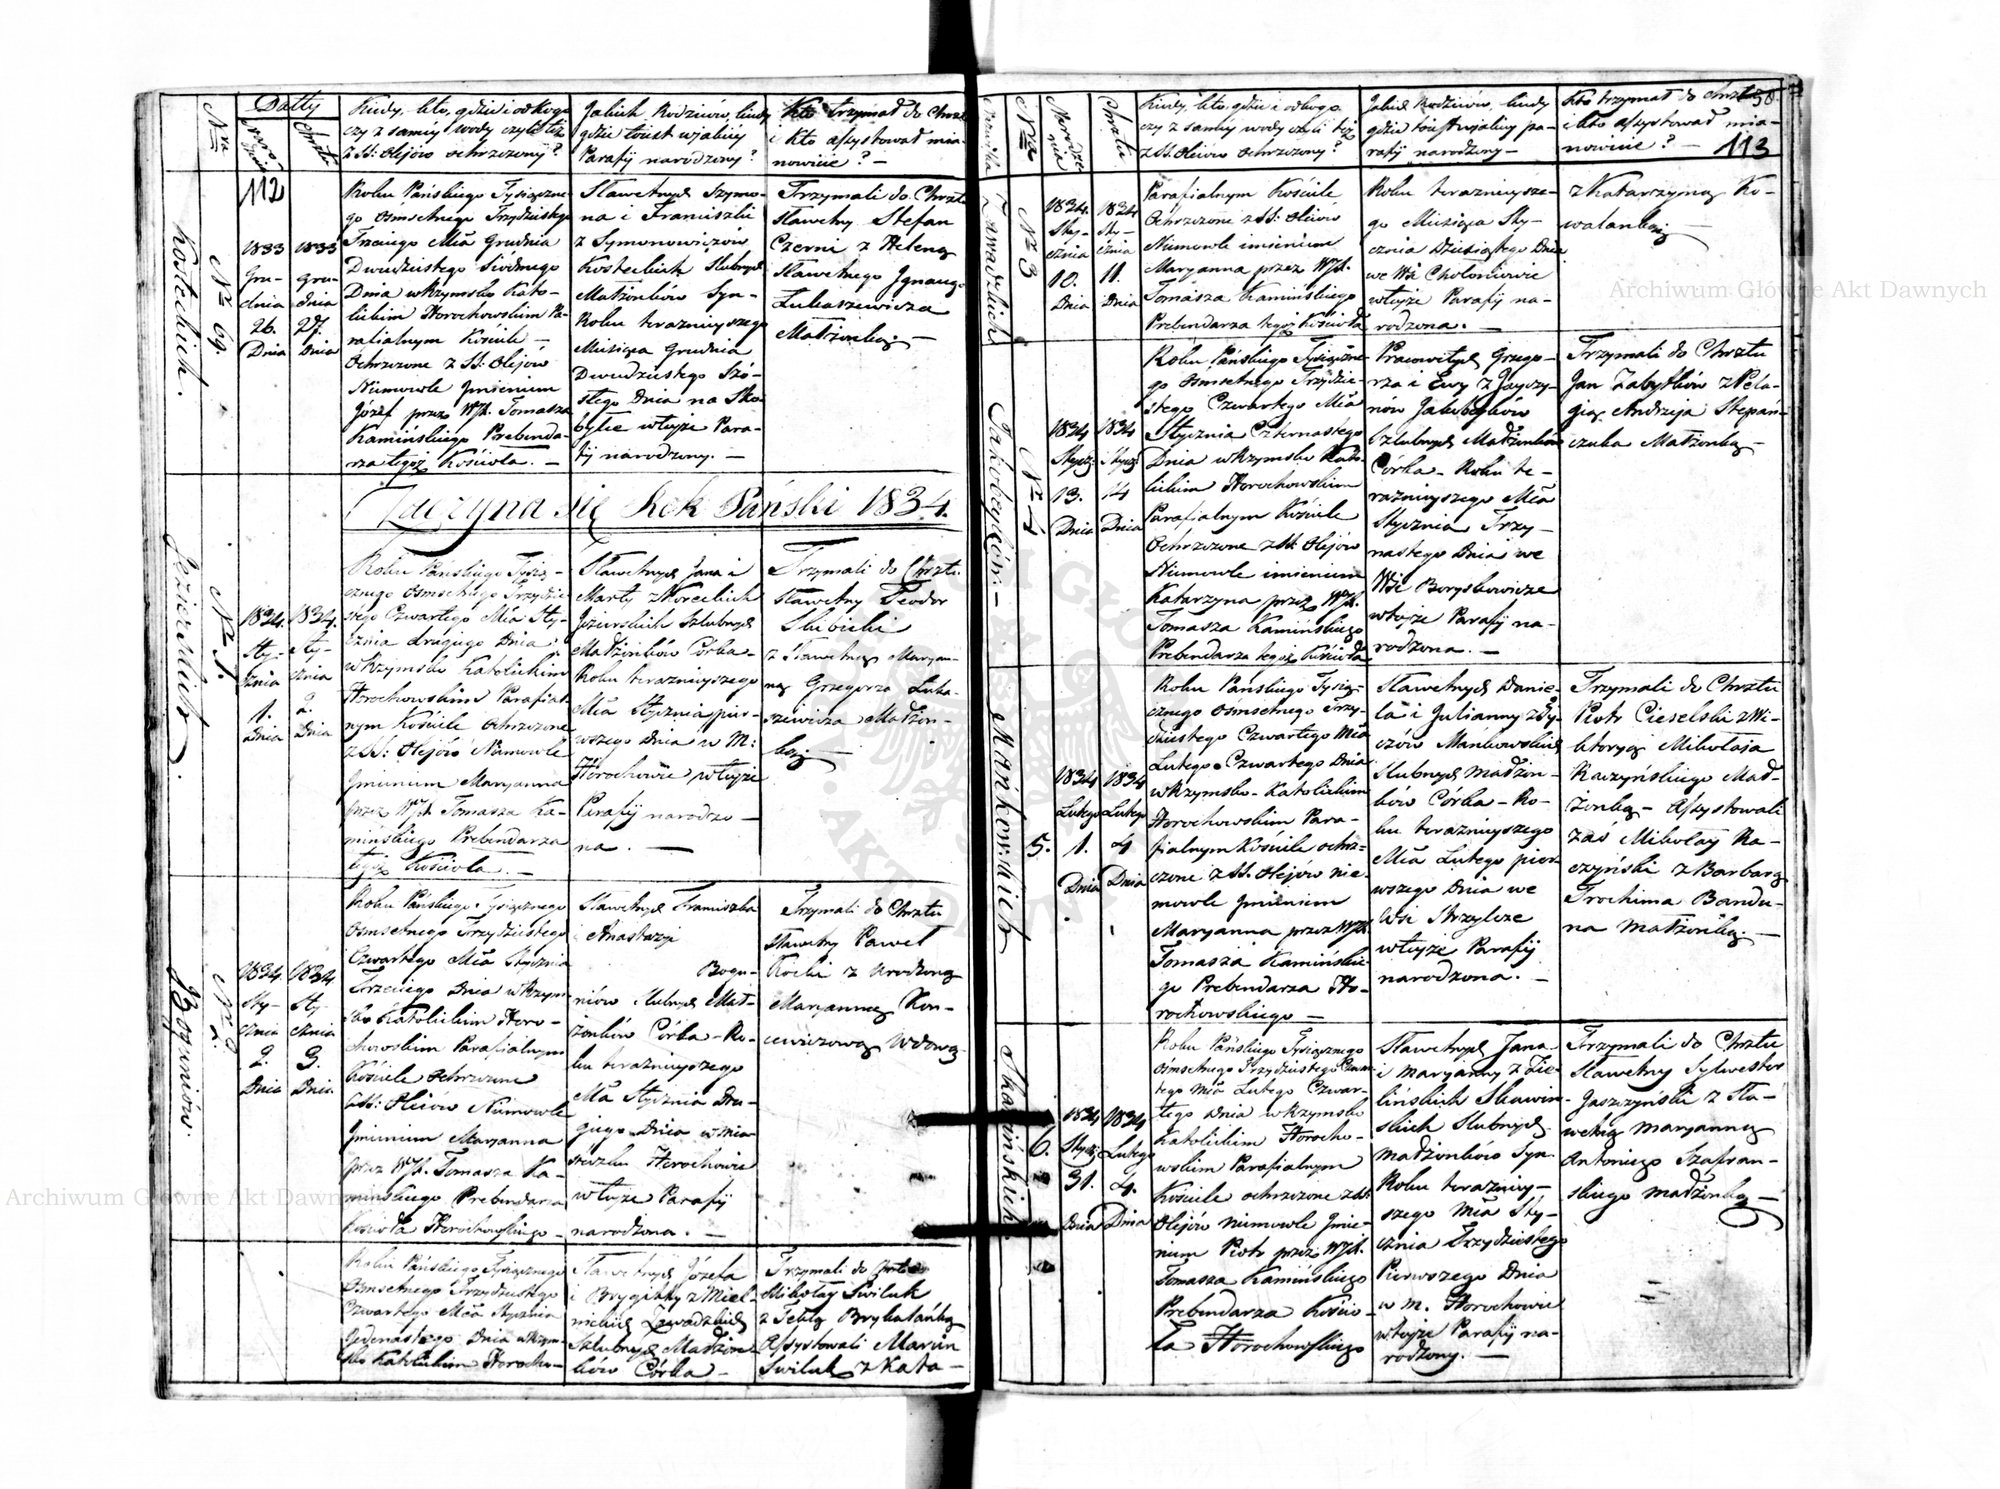 Nra
Datty
Chrztu
Kiedy, kto, gdzie i od kogo
czy z samey wody czyli też
z SS: Olejów ochrzczony?
Jakich Rodziców, kiedy
gdzie tóiest w jakiéy
Parafij narodzony?
Kto trzymał do Chrztu
i kto assystował mia-
nowicie? —
112
Kosteckich.
Nro 69.
1833
Gru-
dnia
26.
Dnia
1833
gru-
dnia
27.
Dnia
Roku Pańskiego Tysiączne-
go Osmsetnego Trzydziestego
Trzeciego Mca Grudnia
Dwudziestego Siódmego
Dnia w Rzymsko Kato-
lickim Horochowskim Pa-
rafialnym Kościele —
Ochrzczone z SS. Olejów
Niemowle Jmieniem
Józef przez WJX. Tomasza
Kamińskiego Prebenda-
rza tegoż Kościoła. —
Sławetnych Szymo-
na i Franciszki
z Symonowiczów
Kosteckich Slubnych
Małżonków Syn —
Roku teraznieyszego
Miesiąca Grudnia
Dwudziestego Szó-
stego Dnia na Sko-
bylce w tejże Para-
fij narodzony. —
Trzymali do Chrztu
Sławetny Stefan
Czerni z Heleną
Sławetnego Jgnacego
Łukaszewicza
Małżonką. —
Zaczyna się Rok Pański 1834.
Jezierskich.
Nro 1.
1834.
Sty-
cznia
1.
Dnia
1834.
Sty-
cznia
2.
Dnia
Roku Pańskiego Tysią-
cznego Osmsetnego Trzydzie-
stego Czwartego Mca Sty-
cznia drugiego Dnia
w Rzymsko Katolickim
Horochowskim Parafial-
nym Kościele Ochrzczone
z SS: Olejów Niemowle
Jmieniem Maryanna
przez WJX Tomasza Ka-
mińskiego Prebendarza
tegoż Kościoła. —
Sławetnych Jana i
Marty z Koreckich
Jezierskich Szlubnych
Małżonków Córka —
Roku teraznieyszego
Mca Stycznia pier-
wszego Dnia w M:
Horochowie w tejże
Parafij narodzo —
na. —
Trzymali do Chrztu
Sławetny Teodor
Słibicki
z Sławetną Maryan-
ną Grzegorza Łuka-
szewicza Małżon-
ką. —
Bogunieów.
Nro 2.
1834.
Sty-
cznia
2.
Dnia
1834
Sty-
cznia
3.
Dnia
Roku Pańskiego Tysiącznego
Osmsetnego Trzydziestego
Czwartego Mca Stycznia
Trzeciego Dnia w Rzym-
sko Katolickim Horo-
chowskim Parafialnym
Kościele Ochrzczone
z SS: Olejów Niemowle
Jmieniem Maryanna
przez WJX. Tomasza Ka-
mińskiego Prebendarza
Kościoła Horochowskiego —
Sławetnych Franciszka
i Anastazyi
Bogu-
niów Slubnych Mał-
żonków Córka — Ro-
ku teraznieyszego
Mca Stycznia Dru-
giego Dnia w mia-
steczku Horochowie
w tejże Parafij
narodzona. —
Trzymali do Chrztu
Sławetny Paweł
Kocki z Urodzoną
Maryanną Kon-
cewiczową Wdową.
Roku Pańskiego Tysiącznego
Osmsetnego Trzydziestego
Czwartego Mca Stycznia
Jedenastego Dnia w Rzym-
sko Katolickim Horocho-
Sławetnych Józefa
i Brygitty z Miel-
nickich Zawadzkich
Szlubnych Małżon-
ków Córka —
Trzymali do Chrztu
Mikołay Swiluk
z Teklą Brykalańką
Assystowali Marcin
Swiluk z Kata —
Nra
Narodze-
nia
Chrztu
Kiedy, kto, gdzie i od kogo
czy z samey wody czyli też
z SS. Olejów Ochrzczony?
Jakich Rodziców, kiedy
gdzie toiest w jakiey pa-
rafij narodzony —
Kto trzymał do Chrztu
i kto assystował mia-
nowicie? —
58.
113
Zawadzkich
Nro 3
1834.
Sty-
cznia
10.
Dnia
1834
Sty-
cznia
11.
Dnia
Parafialnym Kościele
Ochrzczone z SS: Olejów
Niemowle imieniem
Maryanna przez WJX.
Tomasza Kamińskiego
Prebendarza tegoż Kościoła
Roku teraznieysze-
go Miesiąca Sty-
cznia Dziesiątego Dnia
we Wsi Chołoniowie
w tejże Parafij na-
rodzona. —
z Katarzyną Ko-
walanką —
Jakubcyków. —
Nro 4
1834
Stycz:
13.
Dnia
1834
Stycz:
14
Dnia
Roku Pańskiego Tysiączne-
go Osmsetnego Trzydzie-
stego Czwartego Mca
Stycznia Czternastego
Dnia w Rzymsko Kato-
lickim Horochowskim
Parafialnym Kościele
Ochrzczone z SS. Olejów
Niemowle imieniem
Katarzyna przez WJX.
Tomasza Kamińskiego
Prebendarza tegoż Kościoła
Pracowitych Grzego-
rza i Ewy z Jayczy-
nów Jakubcyków
Szlubnych Małżonków
Córka — Roku te-
raznieyszego Mca
Stycznia Trzy-
nastego Dnia we
Wsi Boryskowicze
w tejże Parafij na-
rodzona. —
Trzymali do Chrztu
Jan Zabytków z Pela-
gią Andrzeja Stepań-
czuka Małżonką —
Mańkowskich
5.
1834
Lutego
1.
Dnia
1834
Lutego
4
Dnia
Roku Pańskiego Tysią-
cznego Osmsetnego Trzy-
dziestego Czwartego Mca
Lutego Czwartego Dnia
w Rzymsko-Katolickim
Horochowskim Para-
fialnym Kościele ochrz-
czone z SS. Olejów nie-
mowle Jmieniem
Maryanna przez WJX.
Tomasza Kamińskie-
go Prebendarza Ho-
rochowskiego —
Sławetnych Danie-
la i Julianny z Dy-
czów Mańkowskich
Slubnych Małżon-
ków Córka — Ro-
ku teraznieyszego
Mca Lutego pier-
wszego Dnia we
Wsi Strzylcze
w tejże Parafij
narodzona. —
Trzymali do Chrztu
Piotr Cieselski z Wi-
ktoryą Mikołaja
Raczyńskiego Mał-
żonką — Assystowali
zaś Mikołay Ra-
czyński z Barbarą
Trochima Bandu-
na Małżonką. —
Skawińskich.
6.
1834
Stycz:
31.
Dnia
1834
Lutego
4.
Dnia
Roku Pańskiego Tysiącznego
Osmsetnego Trzydziestego Czwar-
tego Mca Lutego Czwar-
tego Dnia w Rzymsko
Katolickim Horocho-
wskim Parafialnym
Kościele ochrzczone z SS.
Olejów niemowle Jmie-
niem Piotr przez WJX.
Tomasza Kamińskiego
Prebendarza Kościo-
ła Horochowskiego
Sławetnych Jana
i Maryanny z Zie-
lińskich Skawiń-
skich Slubnych
Małżonków Syn
Roku teraźniey-
szego Mca Sty-
cznia Trzydziestego
Pierwszego Dnia
w m. Horochowie
w tejże Parafij na-
rodzony. —
Trzymali do Chrztu
Sławetny Sylwester
Gaszczyński z Sła-
wetną Maryanną
Antoniego Szafrań-
skiego Małżonką —
Archiwum Główne Akt Dawnych
Archiwum Główne Akt Dawnych